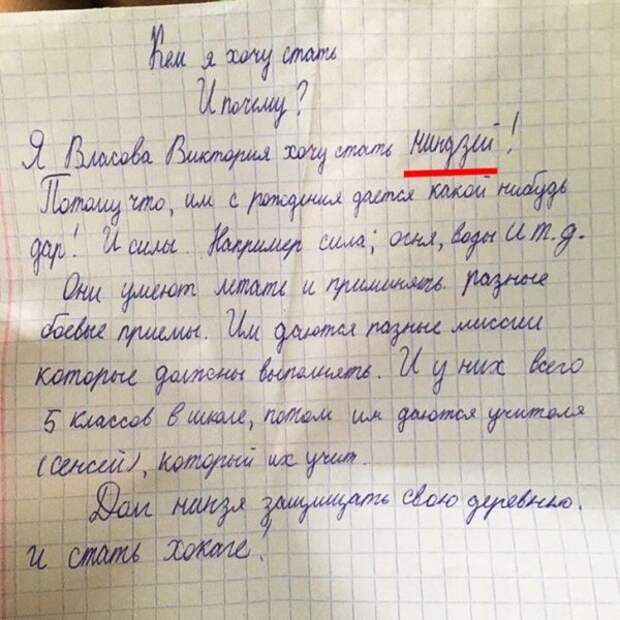 Кем я хочу стать
И почему?
Я Власова Виктория хочу стать ниндзей!
Потому что, им с рождения дается какой нибудь
дар! И силы. Например сила; огня, воды и т.д.
Они умеют летать и приминять разные
боевые приемы. Им даются разные миссии
которые должны выполнять. И у них всего
5 классов в школе, потом им даются учителя
(сенсей), который их учит.
Долг нинзя защищать свою деревнью.
И стать хокаге!